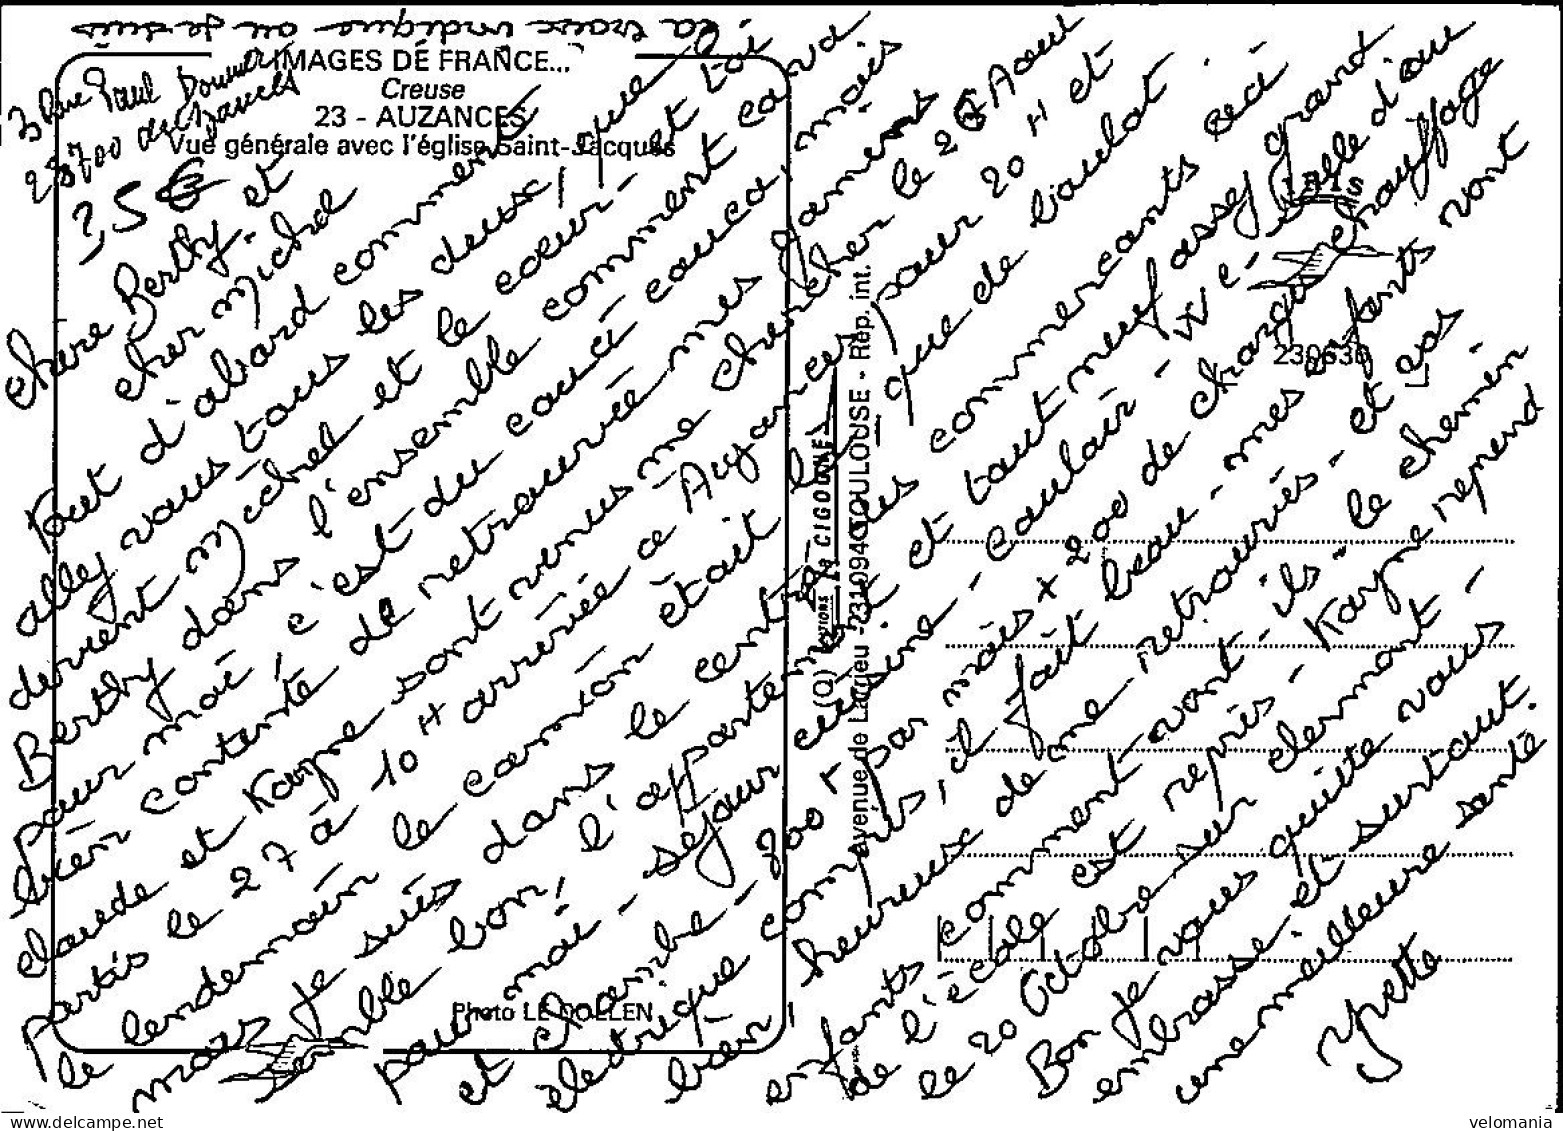 la croix indique où je suis
IMAGES DE FRANCE...
Creuse
23 - AUZANCES
Vue générale avec l'église Saint-Jacques
3 Rue Paul Doumer
23700 Auzances
3,5 €
chère Berthy et
cher Michel
Tout d'abord comment
allez vous tous les deux, que
devient Michel et le coeur et toi
Berthy dans l'ensemble comment ca va
pour moi, c'est du couci couca, mais
bien contente de retrouvée mes gamens
claude et Karyne sont venus me chercher le 26 Aout
partis le 27 à 10 H arrivée a Auzances sour 20 H et
le lendemain le camion était là que de boulot
mais je suis dans le centre des commercants ceci
semble bon, l'appartement et tout neuf assez grand
pour moi - sejour cuisine - couloir - WC - salle d'eau
et chambre - 800 F par mois x 200 de charges chauffage
électrique compris, il fait beau - mes enfants vont
bien, heureux de me retrouvés - et les
enfants comment vont-ils - le chemin
de l'école est repris - Karyne reprend
le 20 Octobre sur clermont -
Bon je vous quitte vous
embrasse - et surtout.
une meilleure santé
Yvette
Photo LE DOLLEN
avenue de Larrieu - 31094 TOULOUSE - Rép. int.
IRIS
230630
delcampe.net
velomania